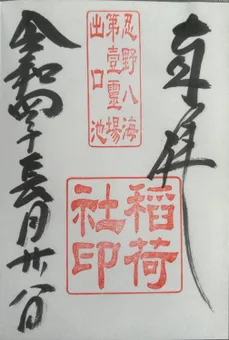 奉拝
忍野八海
第壹霊場
出口池
稲荷
社印
令和四年三月廿八日